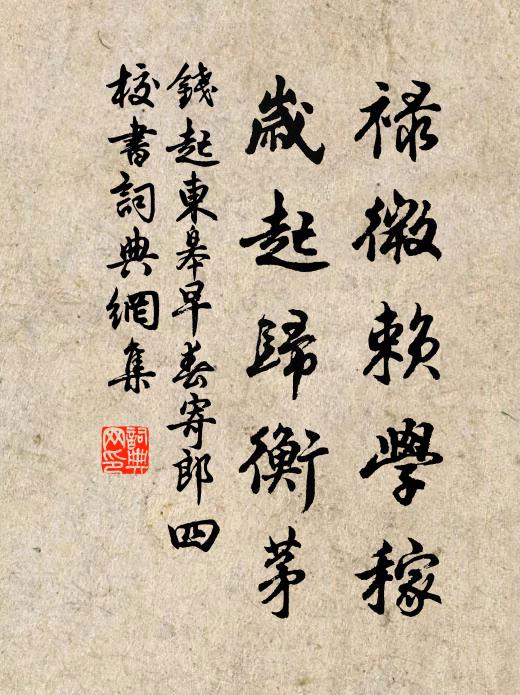 祿微賴學稼
歲起歸衡茅
錢起東皋早春寄郎四
校書詞典網集
詞典網印